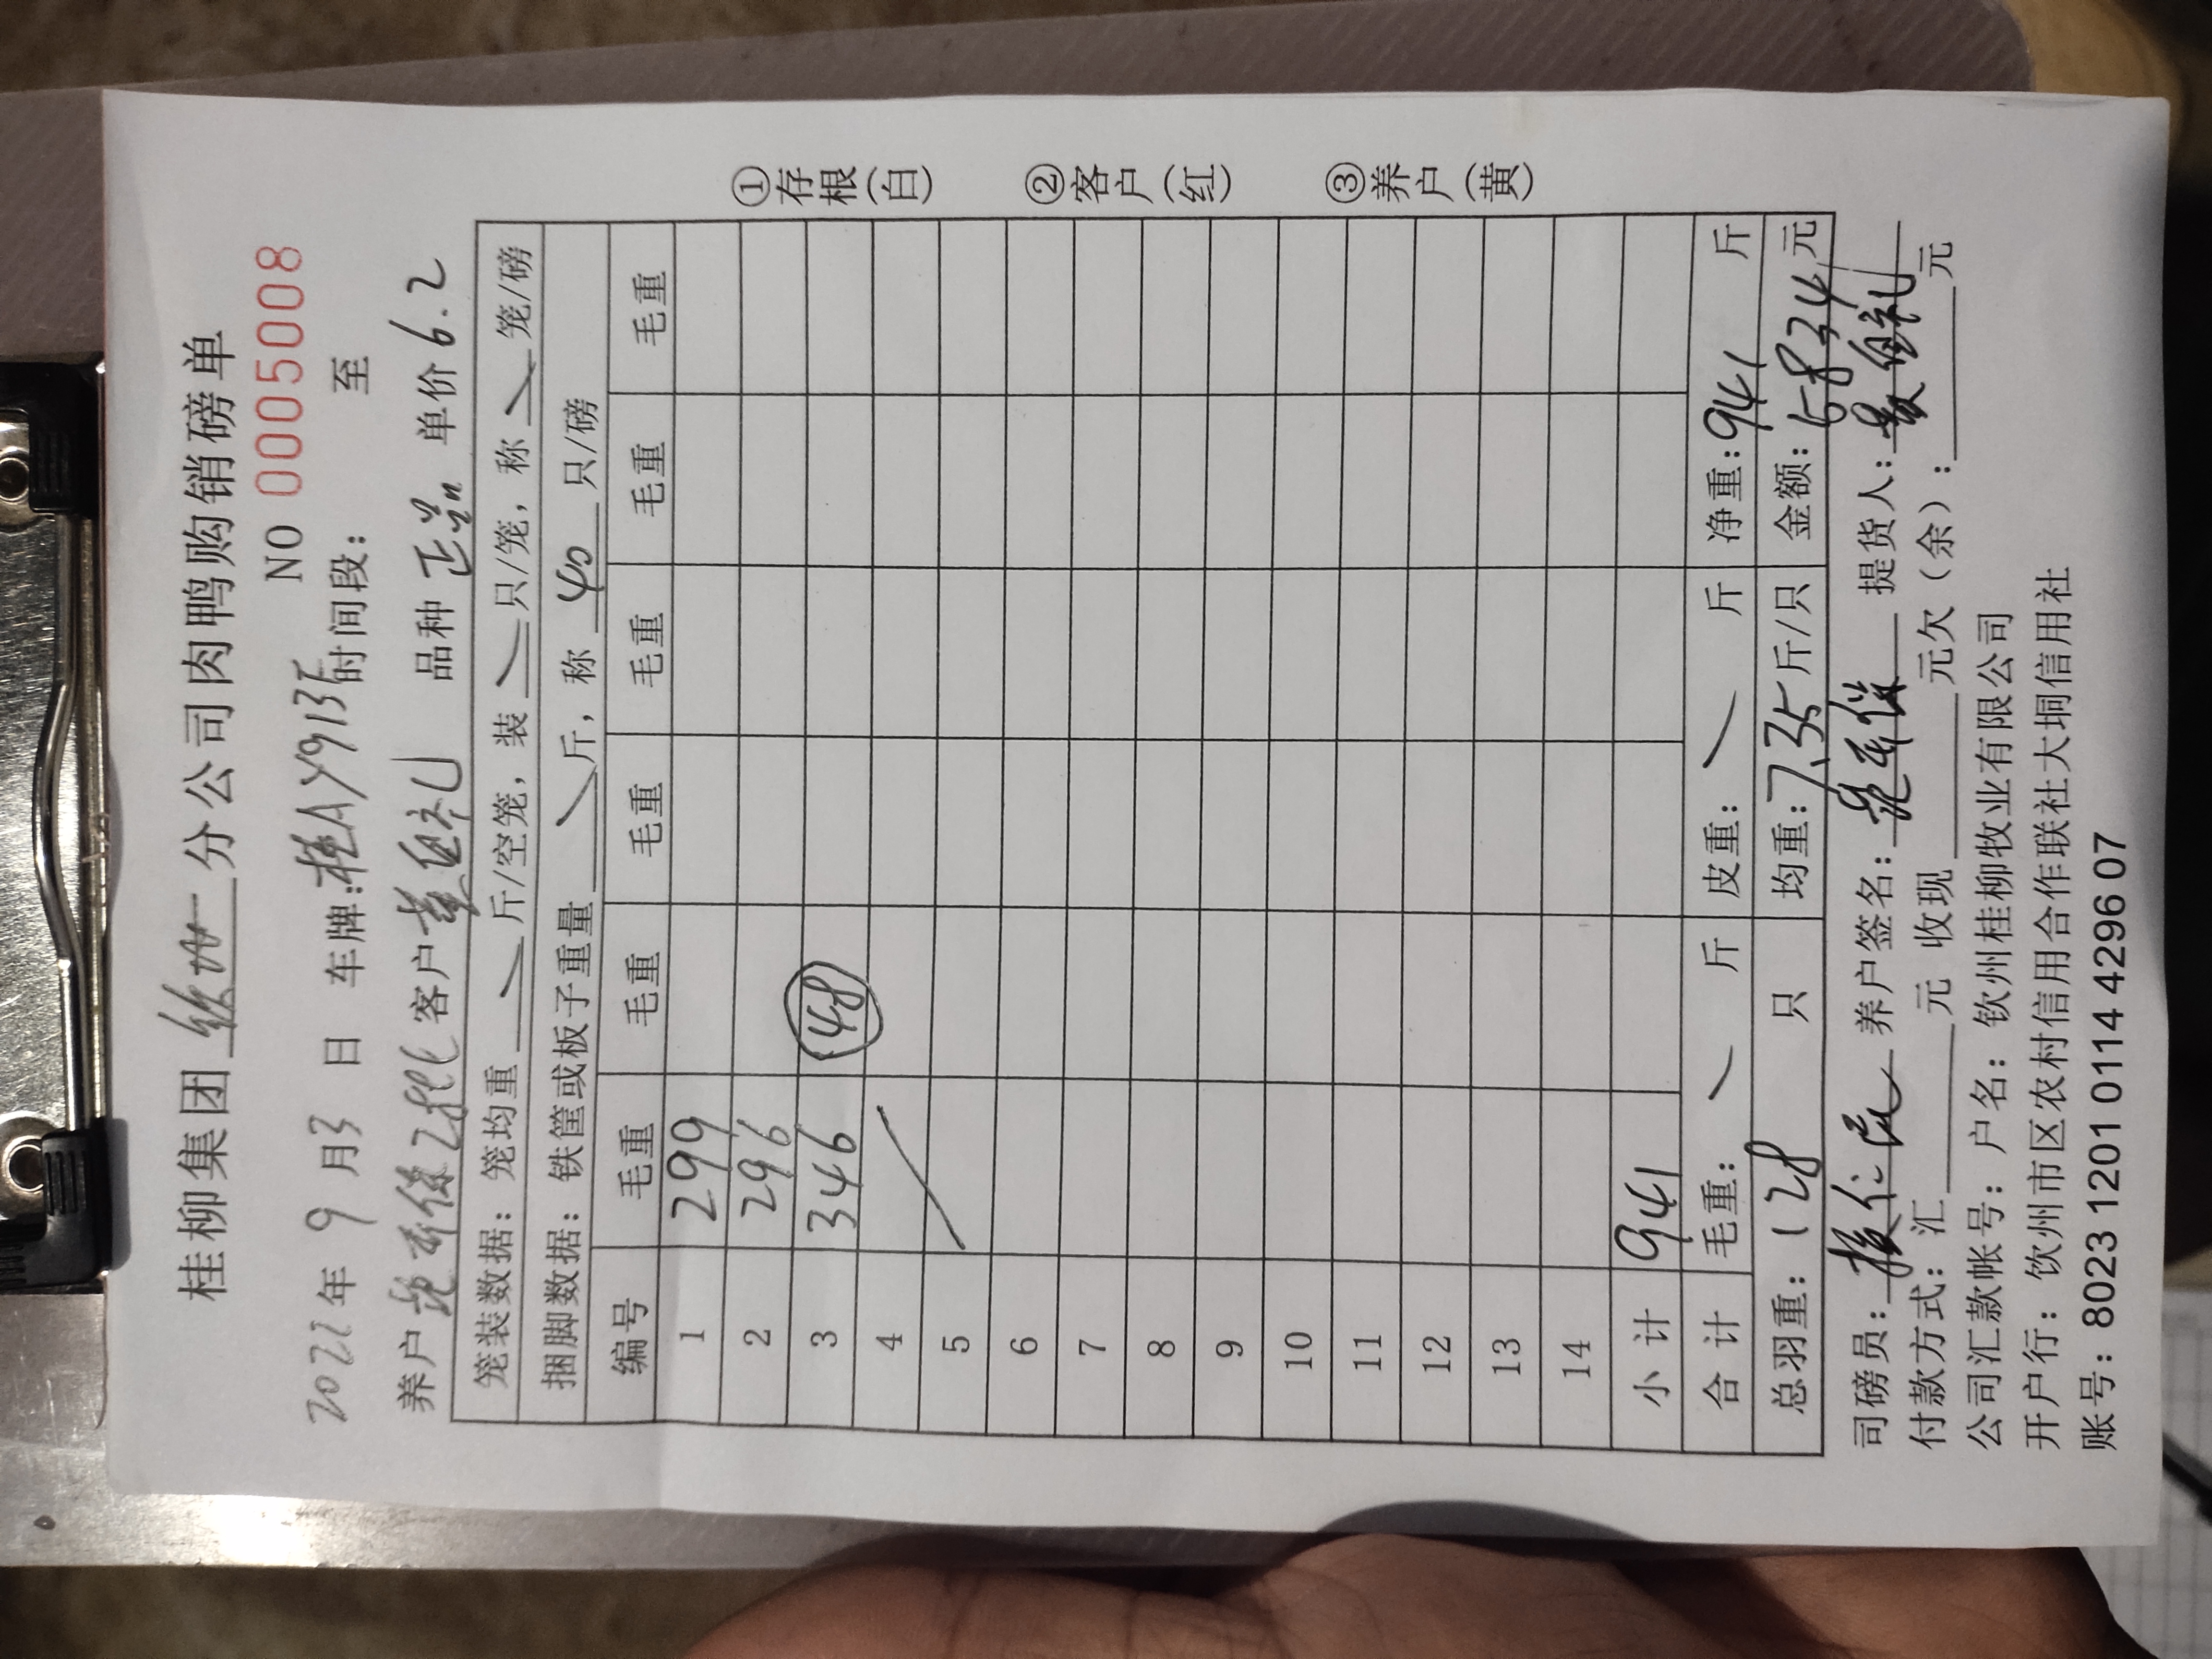 桂柳集团 分公司肉鸭购销磅单
NO 0005008
2022年 9 月3 日 车牌:桂AY913F时间段: 至
养户 客户 品种 正品 单价 6.2
笼装数据: 笼均重 斤/空笼, 装 只/笼, 称 笼/磅
捆脚数据: 铁筐或板子重量 斤, 称 40 只/磅
编号 毛重 毛重 毛重 毛重 毛重 毛重
1 299
2 296
3 346 48
4
5
6
7
8
9
10
11
12
13
14
小 计 941
合 计 毛重: 斤 皮重: 斤 净重: 941 斤
总羽重: 128 只 均重: 7.35 斤/只 金额: 5834 元
司磅员: 养户签名: 提货人:
付款方式: 汇 元 收现 元欠 (余): 元
公司汇款帐号: 户名: 钦州桂柳牧业有限公司
开户行: 钦州市区农村信用合作联社大垌信用社
账号: 8023 1201 0114 4296 07
①存根(白)
②客户(红)
③养户(黄)